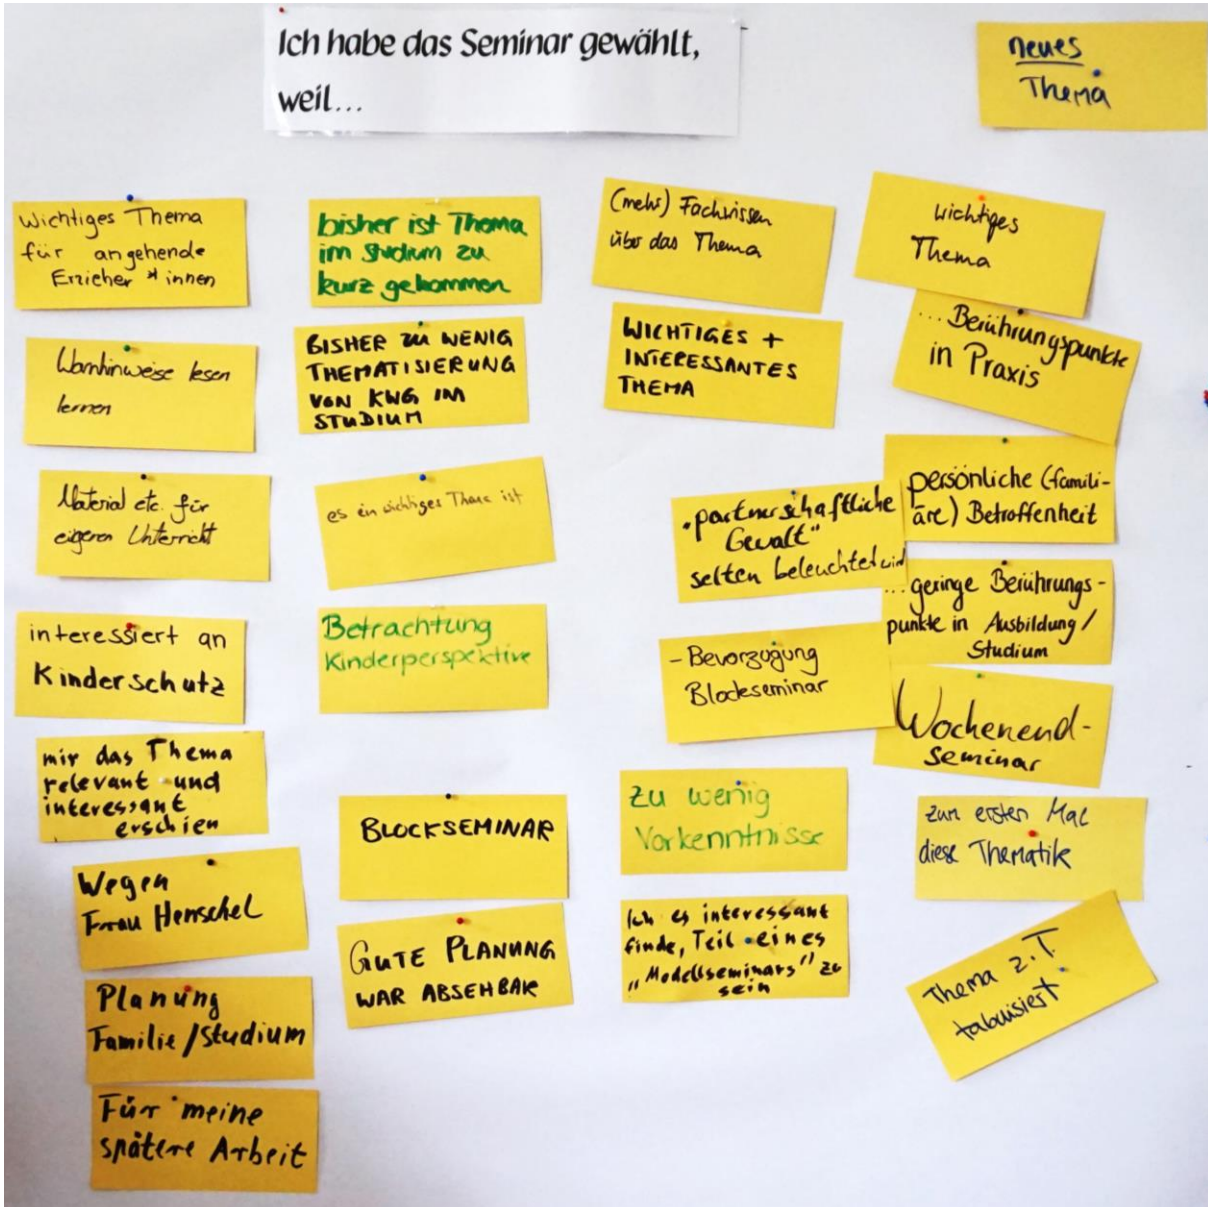 Ich habe das Seminar gewählt,
weil...
neues
Thema
Wichtiges Thema
für angehende
Erzieher*innen
Warnhinweise lesen
lernen
Material etc. für
eigenen Unterricht
interessiert an
Kinderschutz
mir das Thema
relevant und
interessant
erschien
Wegen
Frau Henschel
Planung
Familie/Studium
Für meine
spätere Arbeit
bisher ist Thema
im Studium zu
kurz gekommen
BISHER ZU WENIG
THEMATISIERUNG
VON KWG IM
STUDIUM
es ein wichtiges Thema ist
Betrachtung
Kinderperspektive
BLOCKSEMINAR
GUTE PLANUNG
WAR ABSEHBAR
(mehr) Fachwissen
über das Thema
WICHTIGES +
INTERESSANTES
THEMA
"partnerschaftliche
Gewalt"
selten beleuchtet wird
- Bevorzugung
Blockseminar
zu wenig
Vorkenntnisse
Ich es interessant
finde, Teil eines
„Modellseminars" zu
sein
wichtiges
Thema
...Berührungspunkte
in Praxis
persönliche (famili-
äre) Betroffenheit
...geringe Berührungs-
punkte in Ausbildung/
Studium
Wochenend-
seminar
zum ersten Mal
diese Thematik
Thema z.T.
tabuisiert